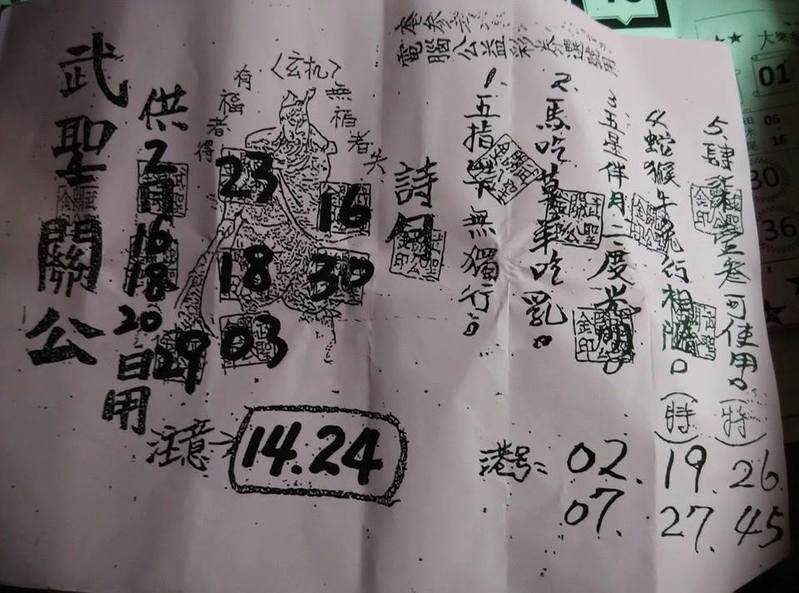 武聖關公
供2月16 18 20日用
有福者得
〈玄机〉
無福者失
23
16
18
30
29
03
注意
14.24
電腦公益彩券
詩句
1.五指 無獨行。
2.馬吃草車吃乳。
3五星伴月二度光明。
4蛇猴牛兔行相隨。(特)
5肆 叁可使用。(特)
港号:
02. 19. 26
07. 27. 45
大樂
01
06
16
30
36